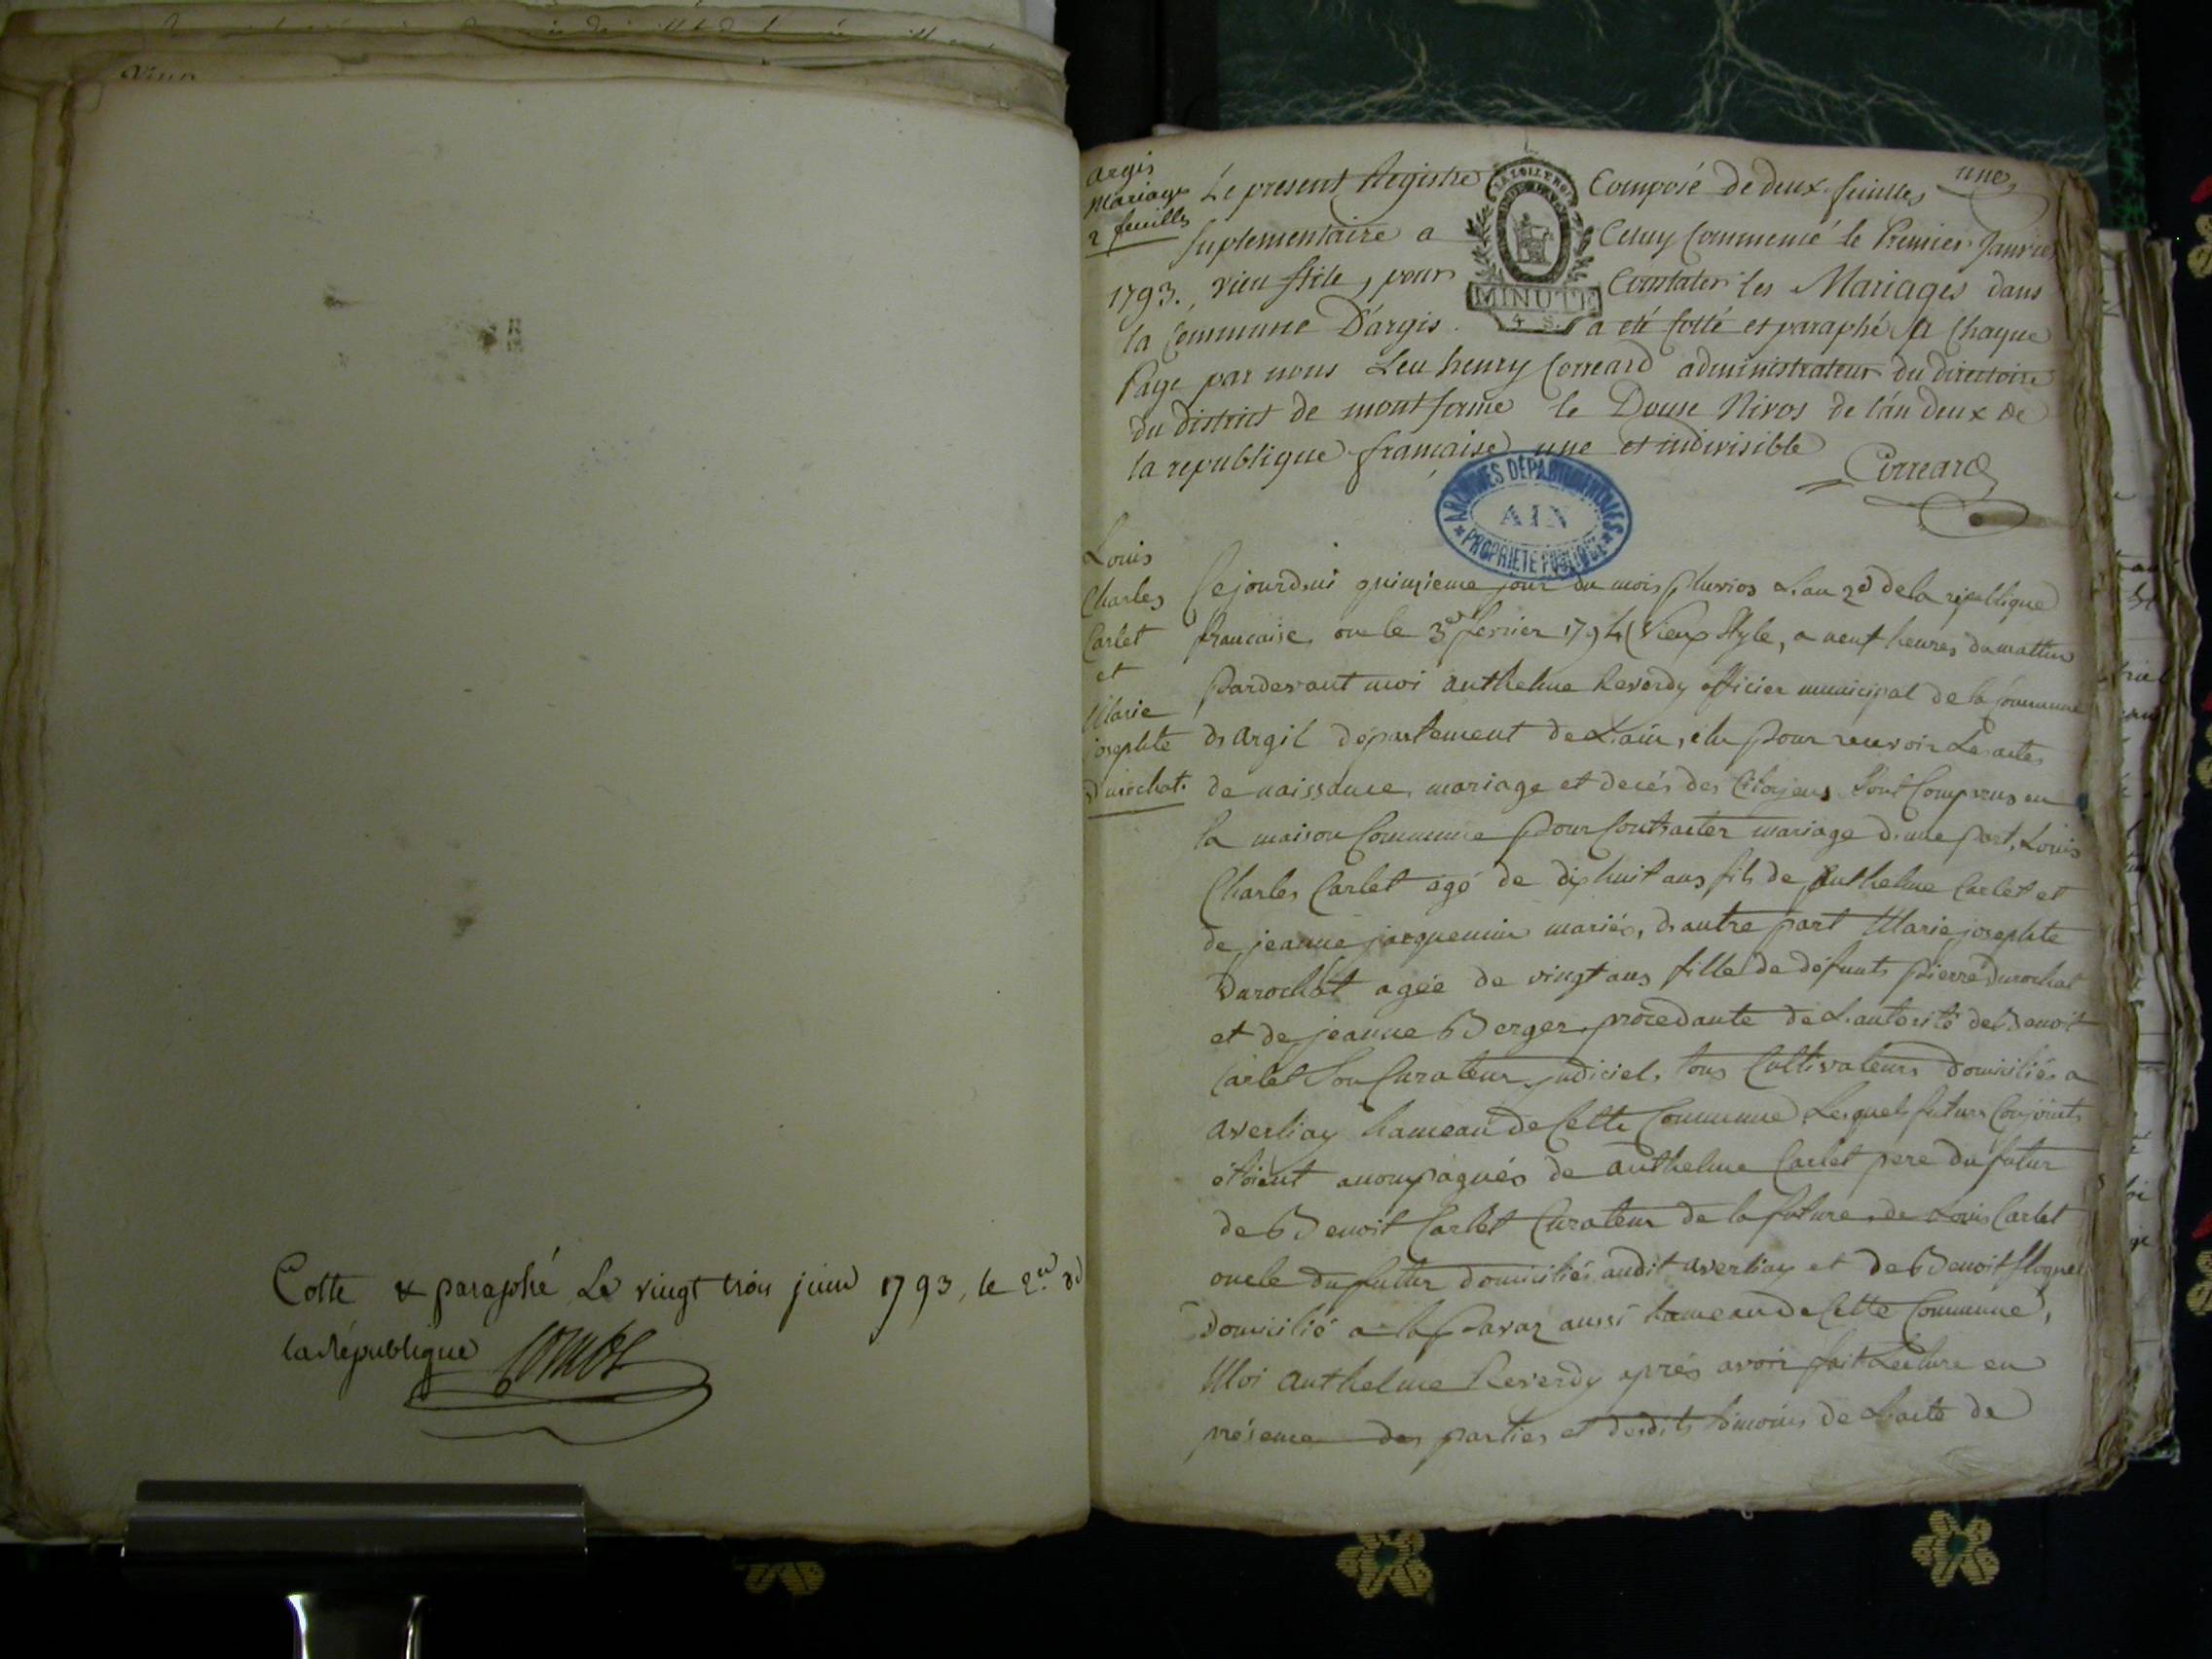 Cotte & paraphé Le vingt trois juin 1793, le 2.e de
la République
argis
Mariages
2 feuilles
une
Le present Registre Composé de deux feuilles
suplementaire a Celuy Commencé le Premier Janvier
1793. vieu stile, pour Constater les Mariages dans
la Commune D'argis. a eté Cotté et paraphé a Chaque
Page par nous Leu henry Correard administrateur du directoire
du district de montferme le Douse Nivos de l'an deux de
la republique française une et indivisible
Correard
LA LOI LE ROI
MINUTE
4 S.
ARCHIVES DÉPARTEMENTALES
AIN
PROPRIÉTÉ PUBLIQUE
Louis
Charles
Carlet
et
Marie
josephte
Durochat.
Cejourdui quinzieme jour du mois pluvios L'an 2d de la république
francaise, ou le 3er fevrier 1794 (Vieux Style, a neuf heures du mattin
Pardevant moi anthelme Reverdy officier municipal de la Commune
d'Argil département de L'ain, élu pour recevoir Les actes
de naissance, mariage et decés des Citoyens Sont Comparus en
la maison Commune pour Contracter mariage d'une part, Louis
Charles Carlet agé de dixhuit ans fils de Anthelme Carlet et
de jeanne jacquemin mariés, d'autre part Marie josephte
Durochat agée de vingt ans fille de défunts pierre Durochat
et de jeanne Berger, procedante de L'autorité de Benoit
Carlet Son Curateur judiciel, tous Cultivateurs domiciliés a
averliay hameau de Cette Commune Lesquels futurs Conjoints
étoient accompagnés de anthelme Carlet pere du futur
de Benoit Carlet Curateur de la future, de Louis Carlet
oncle du futur domiciliés audit averliay et de Benoit
domicilié a la Pavaz aussi hameau de Cette Commune,
Moi Anthelme Reverdy aprés avoir fait Lecture en
présence des parties et desdits témoins de L'acte de